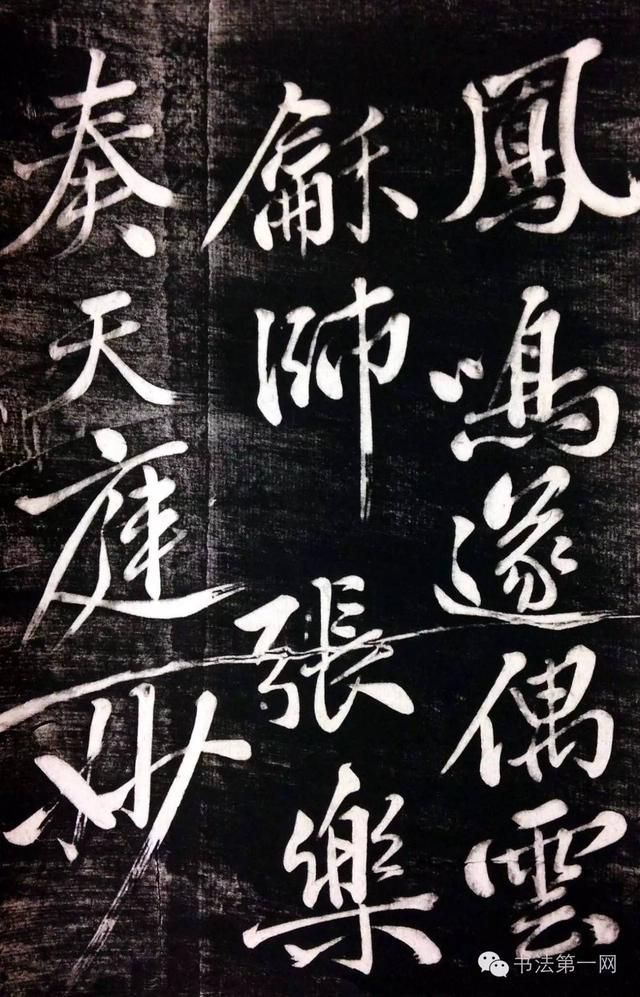 鳳鳴遂偶雲
龢師張樂
奏天庭妙
书法第一网